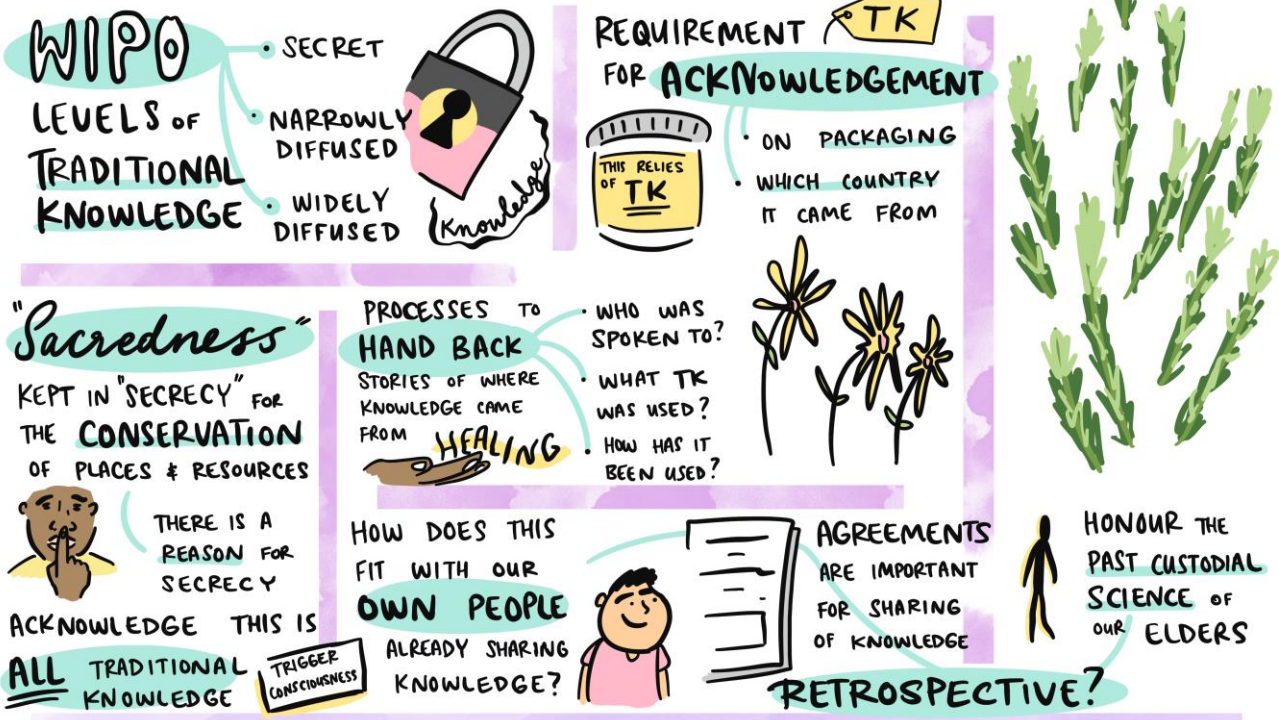 WIPO
LEVELS OF
TRADITIONAL
KNOWLEDGE
• SECRET
• NARROWLY
DIFFUSED
• WIDELY
DIFFUSED
Knowledge
REQUIREMENT
TK
FOR ACKNOWLEDGEMENT
THIS RELIES
OF TK
• ON PACKAGING
• WHICH COUNTRY
IT CAME FROM
"Sacredness"
KEPT IN "SECRECY" FOR
THE CONSERVATION
OF PLACES & RESOURCES
THERE IS A
REASON FOR
SECRECY
ACKNOWLEDGE THIS IS
ALL TRADITIONAL
KNOWLEDGE
TRIGGER
CONSCIOUSNESS
PROCESSES TO
HAND BACK
STORIES OF WHERE
KNOWLEDGE CAME
FROM
HEALING
• WHO WAS
SPOKEN TO?
• WHAT TK
WAS USED?
• HOW HAS IT
BEEN USED?
HOW DOES THIS
FIT WITH OUR
OWN PEOPLE
ALREADY SHARING
KNOWLEDGE?
AGREEMENTS
ARE IMPORTANT
FOR SHARING
OF KNOWLEDGE
RETROSPECTIVE?
HONOUR THE
PAST CUSTODIAL
SCIENCE OF
OUR ELDERS